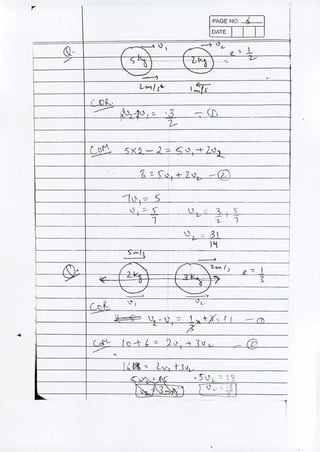 PAGE NO. 6
DATE
Q. 5kg 2kg e = 1/2
v₁ v₂
2m/s 1m/s
COR
v₂-v₁ = 3/2 - ①
COM 5x2 - 2 = 5v₁ + 2v₂
8 = 5v₁ + 2v₂ - ②
7v₁ = 5
v₁ = 5/7 v₂ = 3/2 + 5/7
v₂ = 31/14
5m/s
Q. 2kg 3kg 2m/s e = 1/3
v₁ v₂
COR
v₂-v₁ = 1/3 x 3 = 1 - ①
COM 10+6 = 2v₁ + 3v₂ - ②
16 = 2v₁ + 3v₂
5v₂ = 18